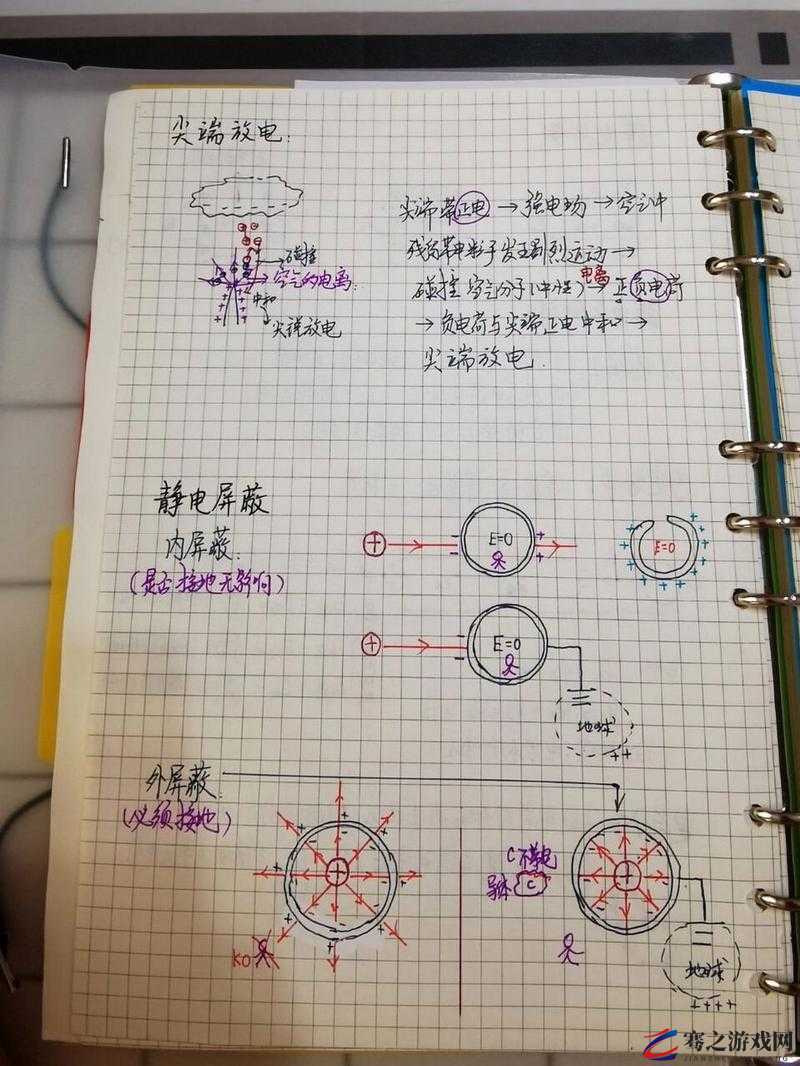 尖端放电:
碰撞
空气的电离
中和
尖端放电
尖端带正电→强电场→空气中
残留带电粒子发生剧烈运动→
碰撞空气分子(中性)→正负电荷
电离
→负电荷与尖端正电中和→
尖端放电.
静电屏蔽
内屏蔽:
(是否接地无影响)
E=0
E=0
E=0
地球
外屏蔽:
(必须接地)
KO
C不带电
导体
C
地球
骞之游戏网